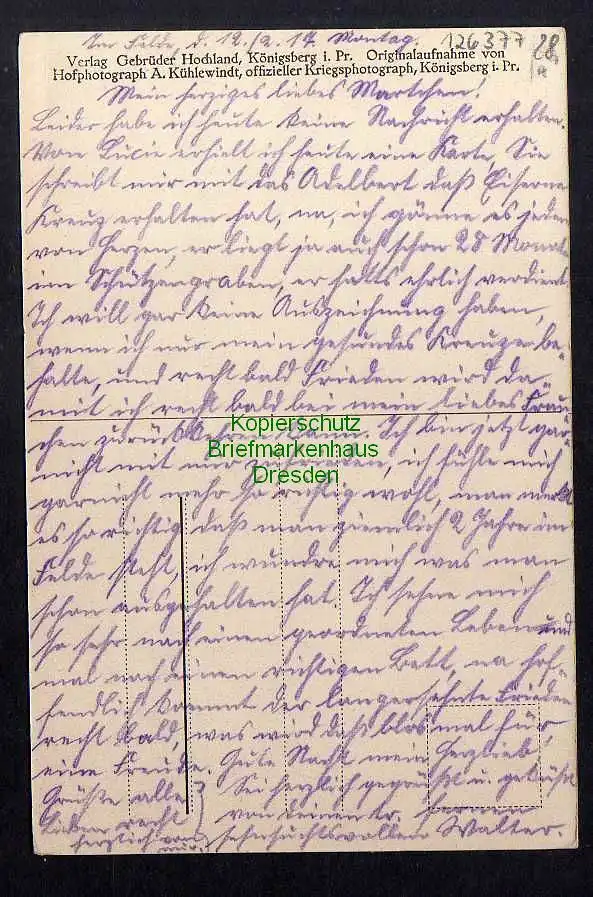 Im Felde, d. 12./2.17. Montag.
126377
28
Verlag Gebrüder Hochland, Königsberg i. Pr. Originalaufnahme von
Hofphotograph A. Kühlewindt, offizieller Kriegsphotograph, Königsberg i. Pr.
Mein herziges liebes Martchen!
Leider habe ich heute keine Nachricht erhalten.
Von Lucie erhielt ich heute eine Karte, Sie
schreibt mir mit das Adelbert daß Eiserne
Kreuz erhalten hat, na, ich gönne es jeden
von Herzen, er liegt ja auch schon 28 Monate
im Schützengraben, er hatts ehrlich verdient.
Ich will gar keine Auszeichnung haben,
wenn ich nur mein gesundes Kreuze be-
halte, und recht bald Frieden wird da-
mit ich recht bald bei mein liebes Frau-
chen zurück kann. Ich bin jetzt gar
nicht mit mir zufrieden, ich fühle mich
garnicht mehr so richtig wohl, man merkt
es so richtig daß man ziemlich 2 Jahre im
Felde steht, ich wundre mich was man
schon ausgehalten hat. Ich sehne mich
so sehr nach einen geordneten Leben und
mal nach einen richtigen Bett, na hof-
fendlich kommt der langersehnte Frieden
recht bald, was wird daß blos mal für
eine Freude. Gute Nacht mein Herzlieb!
Sei herzlich gegrüßt u. geküßt
Grüße alle
von deinen tr. fernen
Lieben recht
herzlich von
mir.
sehnsuchtsvollen Walter.
Kopierschutz
Briefmarkenhaus
Dresden